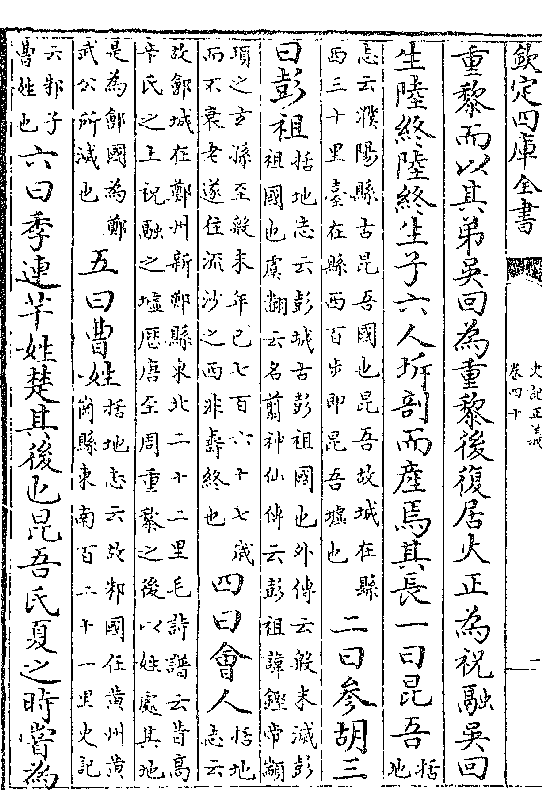 欽定四庫全書
史記正義
卷四十
重黎而以其弟吳回為重黎後復居火正為祝融吳回
生陸終陸終生子六人坼剖而產焉其長一曰昆吾括地
志云濮陽縣古昆吾國也昆吾故城在縣西三十里臺在縣西百步即昆吾墟也二曰參胡三
曰彭祖括地志云彭城古彭祖國也外傳云殷末滅彭祖國也虞翻云名翦神仙傳云彭祖諱鏗帝顓
頊之玄孫至殷末年已七百六十七歲而不衰老遂往流沙之西非壽終也四曰會人括地志云
故鄶城在鄭州新鄭縣東北二十二里毛詩譜云昔高辛氏之土祝融之墟歷唐至周重黎之後以姓處其地
是為鄶國為鄭武公所滅也五曰曹姓括地志云故邾國在黃州黃岡縣東南百二十一里史記
云邾子曹姓也六曰季連芊姓楚其後也昆吾氏夏之時嘗為